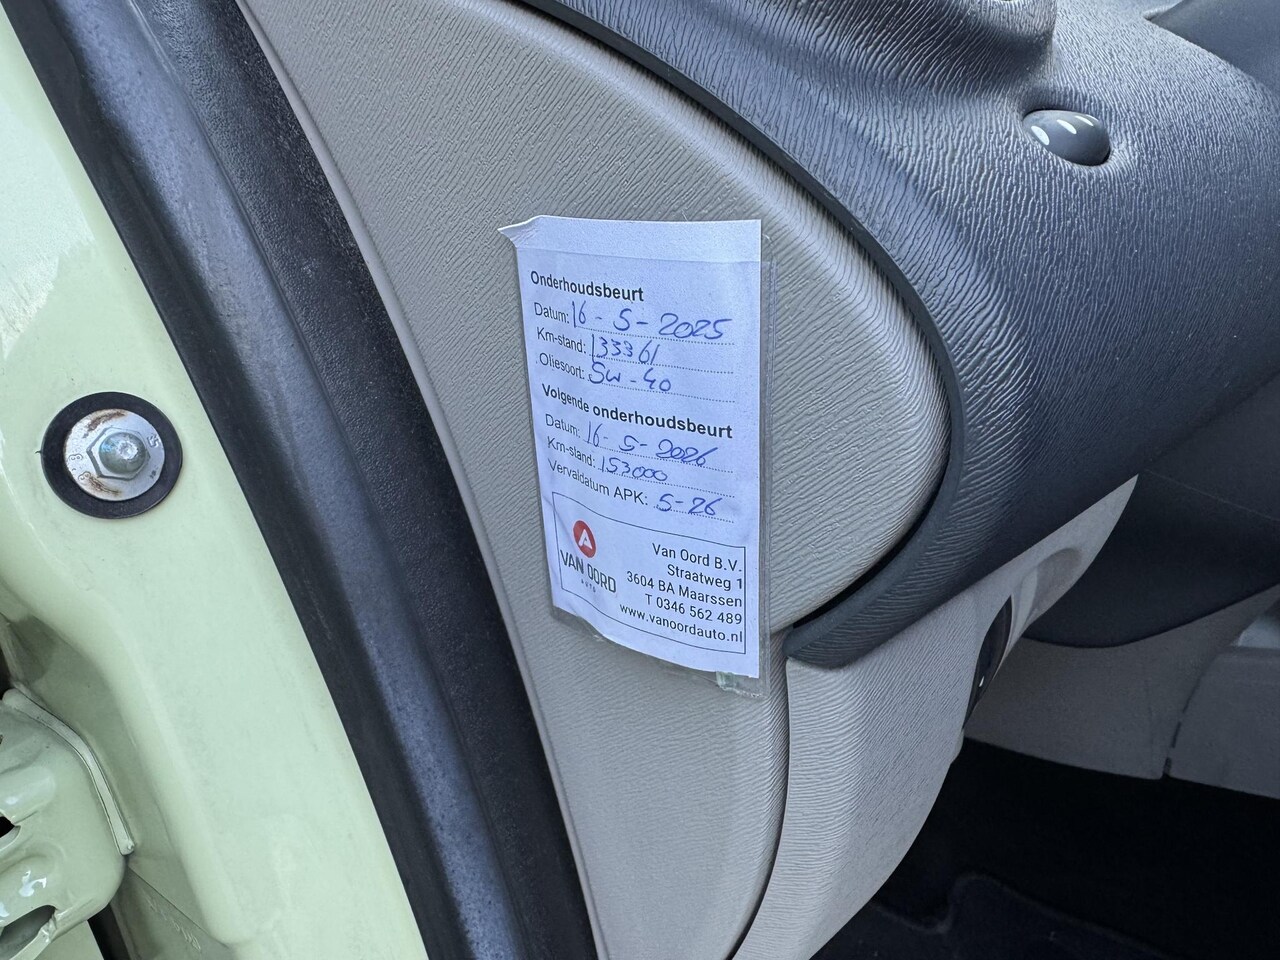 Onderhoudsbeurt
Datum: 16-5-2025
Km-stand: 133361
Oliesoort: 5w-40
Volgende onderhoudsbeurt
Datum: 16-5-2026
Km-stand: 153000
Vervaldatum APK: 5-26
A
VAN OORD
AUTO
Van Oord B.V.
Straatweg 1
3604 BA Maarssen
T 0346 562 489
www.vanoordauto.nl
8.8